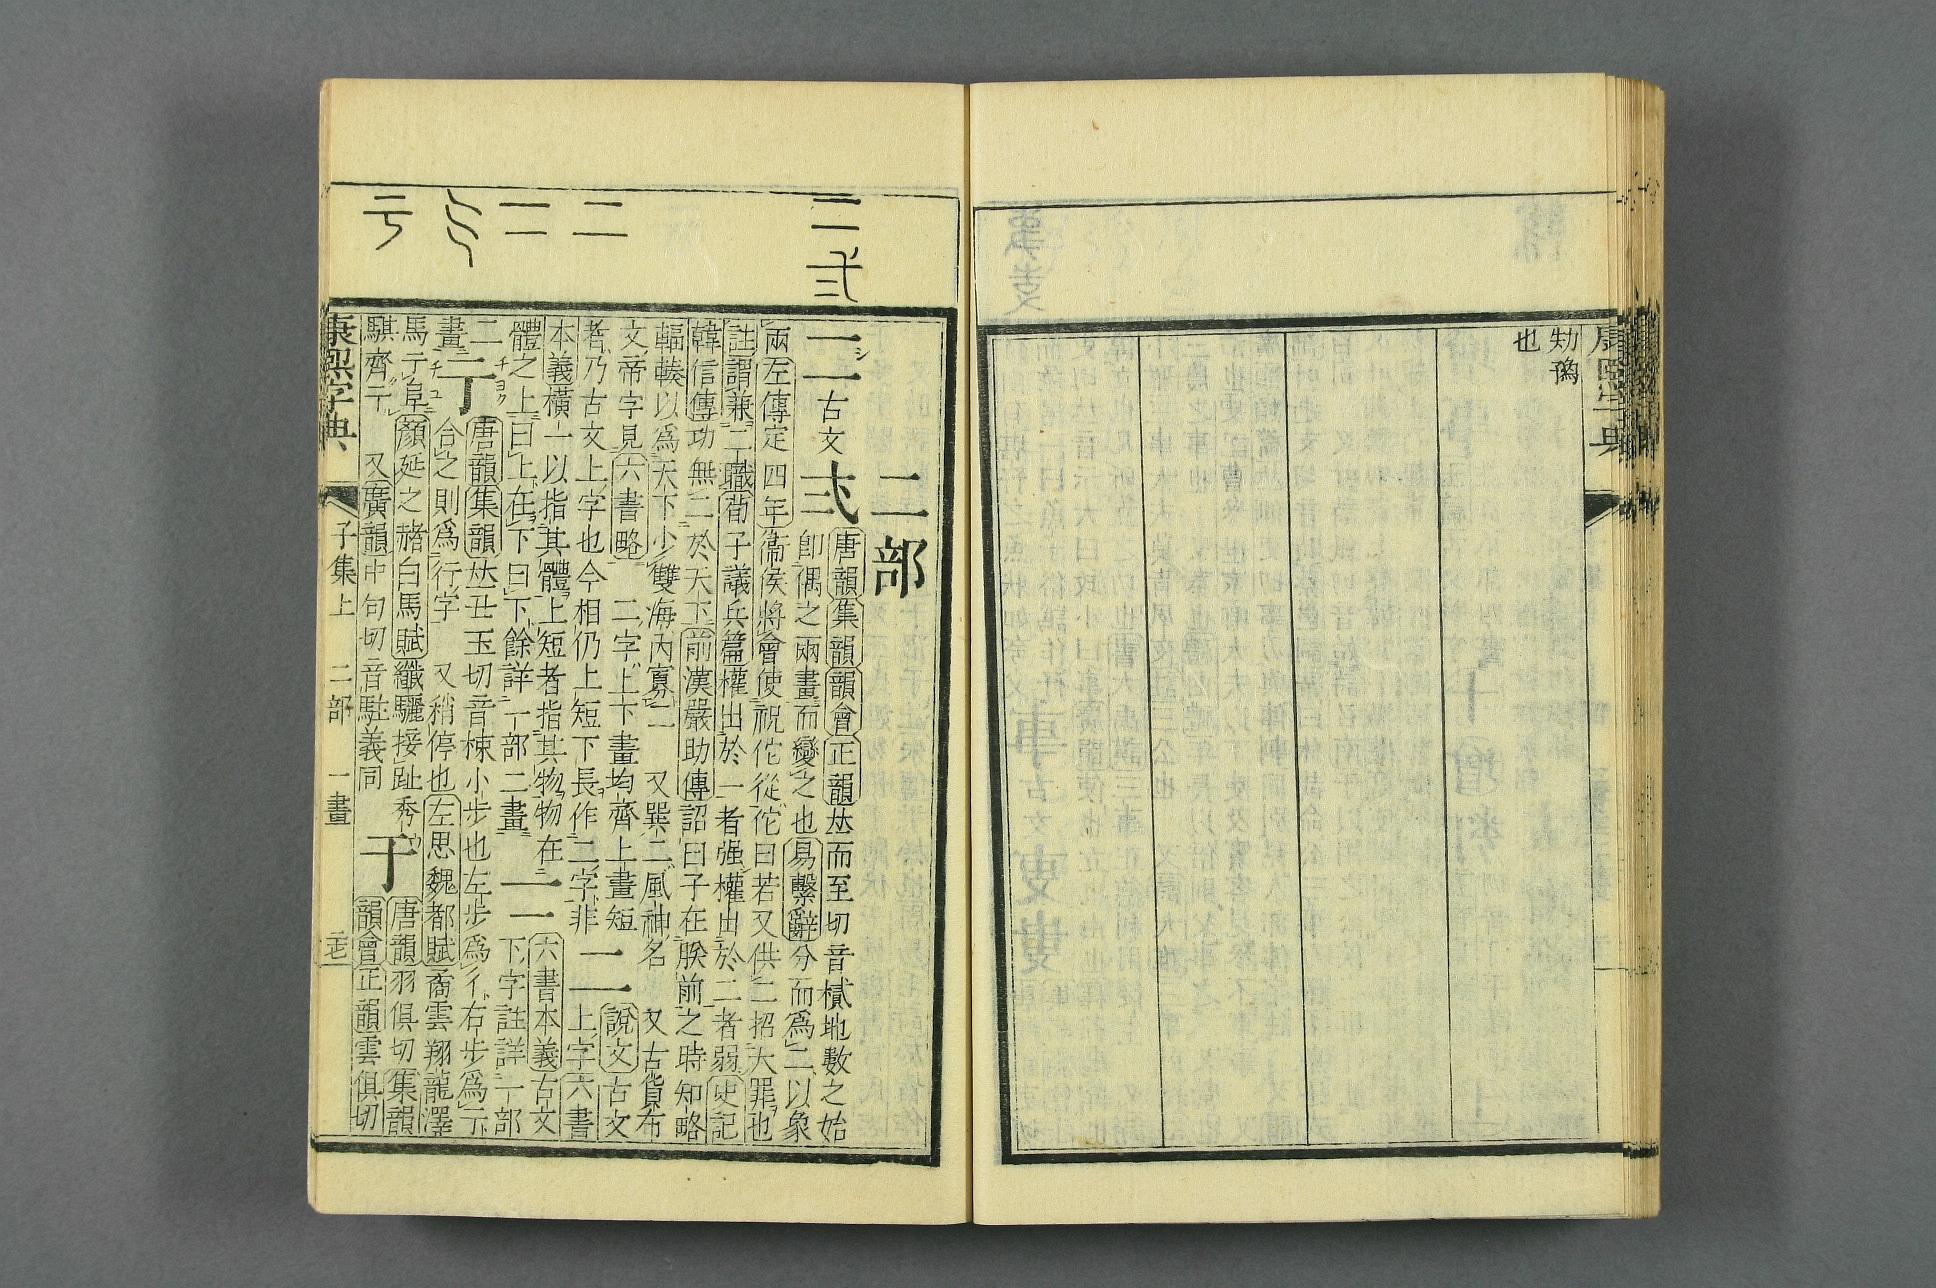 康熙字典
也
二
弍
二
二
亍
二部
二古文弍唐韻集韻韻會正韻𠀤而至切音樲地數之始
卽偶之兩畫而變之也易繫辭分而為二以象
兩左傳定四年衞侯將會使祝佗從佗曰若又供二招大罪也
註謂兼二職荀子議兵篇權出於一者强權出於二者弱史記
韓信傳功無二於天下前漢嚴助傳詔曰子在朕前之時知略
輻輳以為天下少雙海內寡二 又巽二風神名 又古貨布
文帝字見六書略 二字上下畫均齊上畫短
者乃古文上字也今相仍上短下長作二字非
二說文古文
上字六書
本義橫一以指其體上短者指其物物在
體之上曰上在下曰下餘詳一部二畫
二六書本義古文
下字註詳一部
二
畫
亍唐韻集韻𠀤丑玉切音梀小步也左步為彳右步為亍
合之則為行字 又稍停也左思魏都賦矞雲翔龍澤
馬亍阜顏延之赭白馬賦纖驪接趾秀
騏齊亍 又廣韻中句切音駐義同
于唐韻羽俱切集韻
韻會正韻雲俱切
康熙字典 子集上 二部 一畫